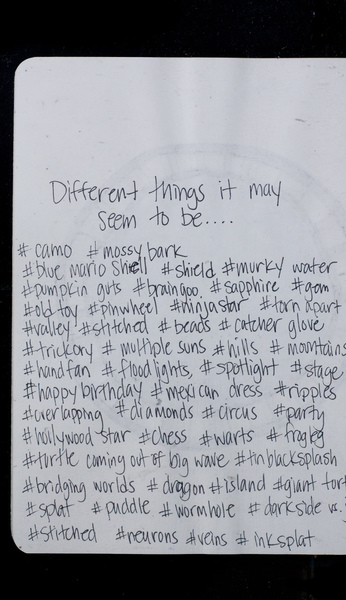 Different things it may
seem to be....
# camo #mossy bark
#blue mario shell #shield #murky water
#pumpkin guts #braingoo #sapphire #gem
#old toy #pinwheel #ninjastar #torn apart
#valley #stitched #beads #catcher glove
#trickory # multiple suns #hills # mountains
#handfan #floodlights, #spotlight #stage
#happy birthday # mexican dress #ripples
#overlapping #diamonds #circus #party
#hollywood star #chess #warts #froggy
#turtle coming out of big wave #tinblacksplash
#bridging worlds # dragon #island #giant
#splat #puddle #wormhole # darkside vs.
#stitched #neurons #veins # inksplat